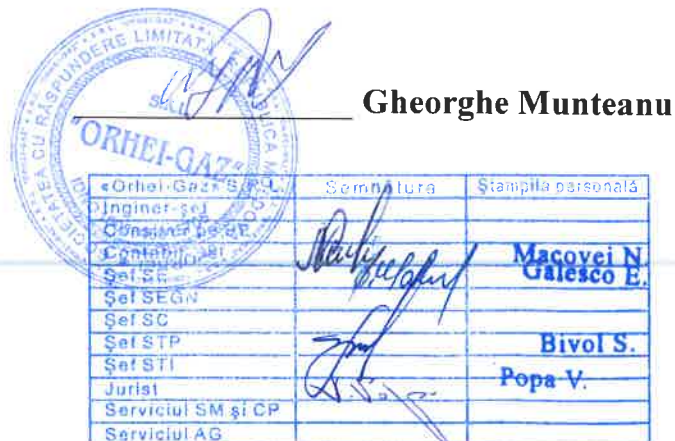 SOCIETATEA CU RĂSPUNDERE LIMITATĂ
"ORHEI-GAZ"
Gheorghe Munteanu
«Orhei-Gaz» S.R.L. Semnătura Ștampila personală
Inginer-șef
Contabil-șef Macovei N.
Șef SE Galesco E.
Șef SEGN
Șef SC
Șef STP Bivol S.
Șef STI
Jurist Popa V.
Serviciul SM și CP
Serviciul AG